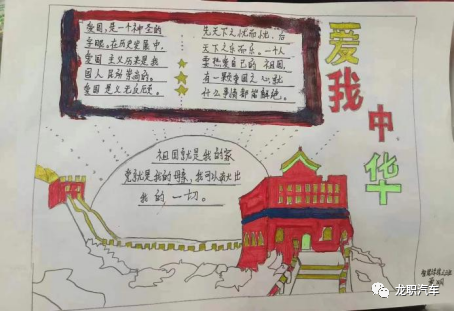 爱我中华
爱国,是一个神圣的
字眼。在历史发展中,
爱国主义历来是我
国人民所崇尚的。
爱国是义无反顾。
先天下之忧而忧,后
天下之乐而乐。一个人
要热爱自己的祖国,
有一颗爱国之心,就
什么事情都能解绝。
祖国就是我的家
党就是我的母亲,我可以献出
我的一切。
龙职汽车